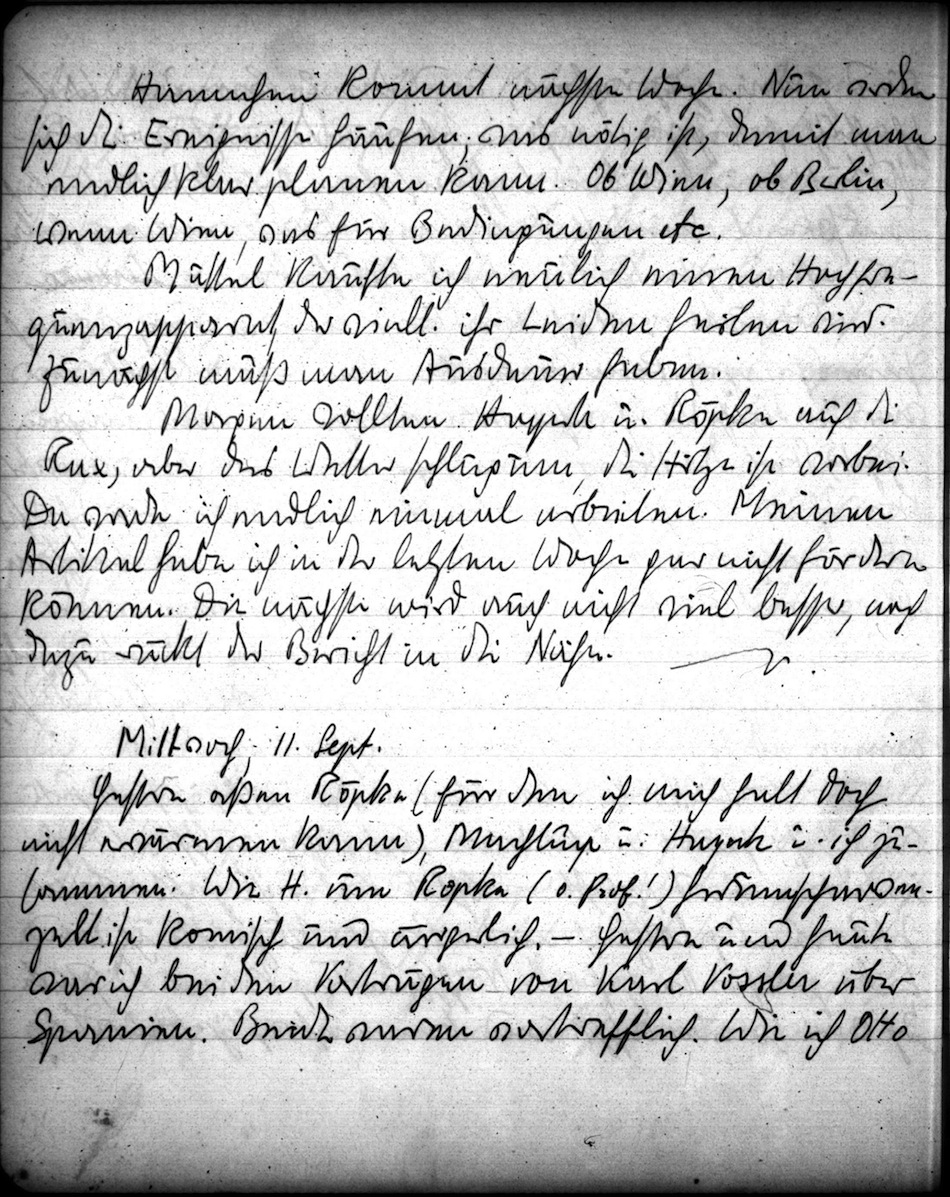 Hannchen kommt nächste Woche. Nun werden
sich die Ereignisse häufen, was nötig ist, damit man
endlich klar planen kann. Ob Wien, ob Berlin,
wenn Wien, was für Bedingungen etc.
Muttel kaufte ich neulich einen Hochfre-
quenzapparat, der vielleicht ihr Leiden heilen wird.
Zunächst muß man Ausdauer haben.
Morgen wollten Hayek u. Röpke auf die
Rax, aber das Wetter schlug um, die Hitze ist vorbei.
Da werde ich endlich einmal arbeiten. Meinen
Artikel habe ich in der letzten Woche gar nicht fördern
können. Die nächste wird auch nicht viel besser, noch
dazu rückt der Bericht in die Nähe.
Mittwoch, 11. Sept.
Gestern aßen Röpke (für den ich mich halt doch
nicht erwärmen kann), Machlup u. Hayek u. ich zu-
sammen. Wie H. um Röpke (o. Prof.!) herumscharwen-
zelt ist komisch und ärgerlich. — Gestern und heute
war ich bei den Vorträgen von Karl Vossler über
Spanien. Beide waren vortrefflich. Wie ich Otto